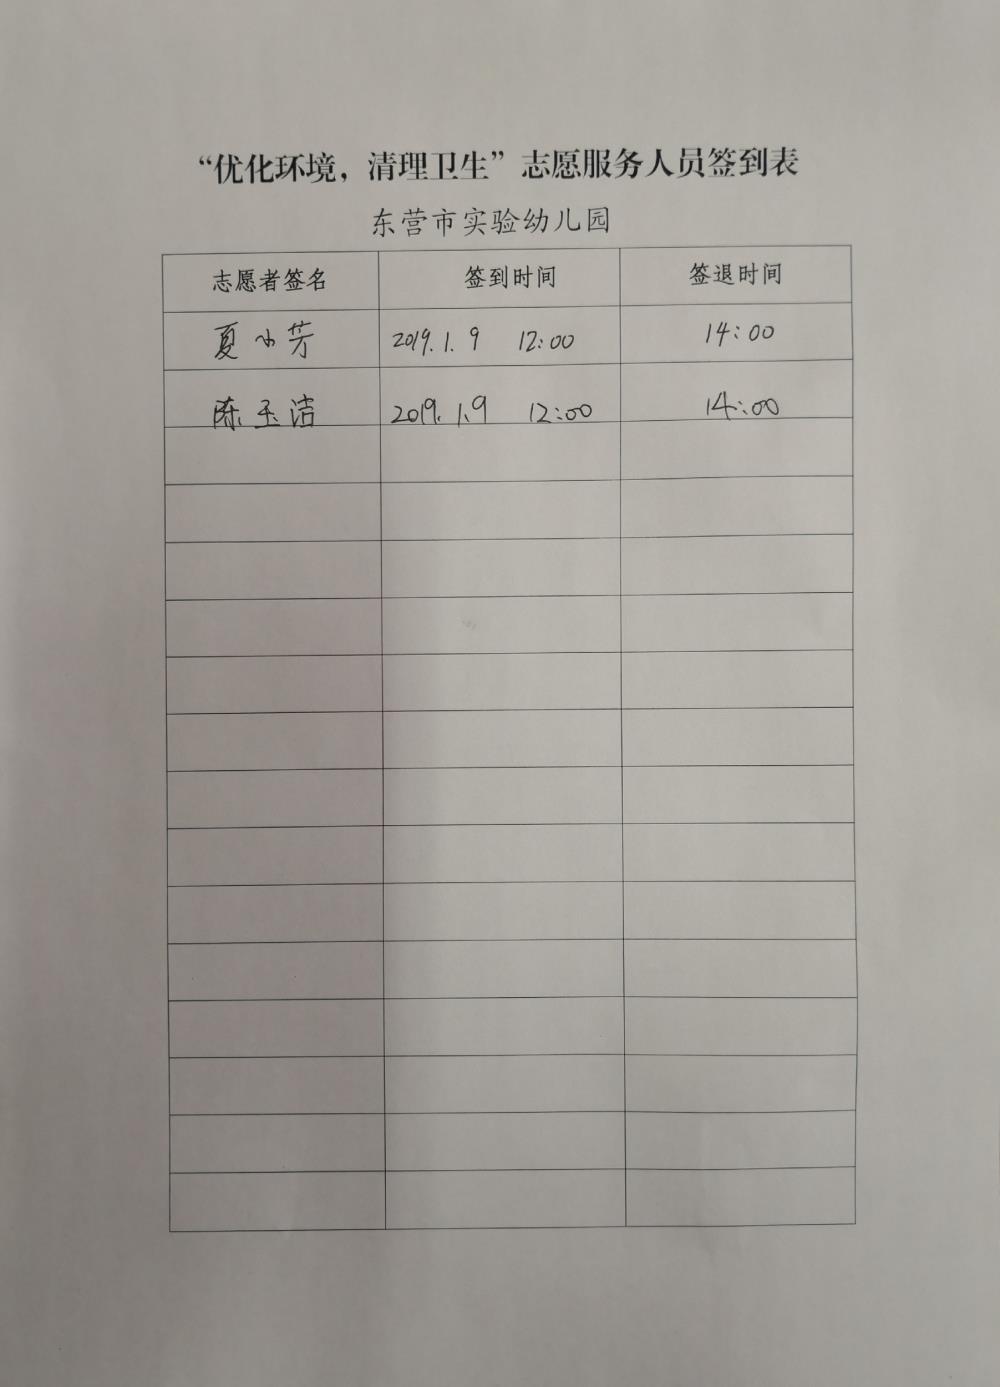 “优化环境，清理卫生”志愿服务人员签到表
东营市实验幼儿园
志愿者签名 签到时间 签退时间
夏小芳 2019.1.9 12:00 14:00
陈玉洁 2019.1.9 12:00 14:00